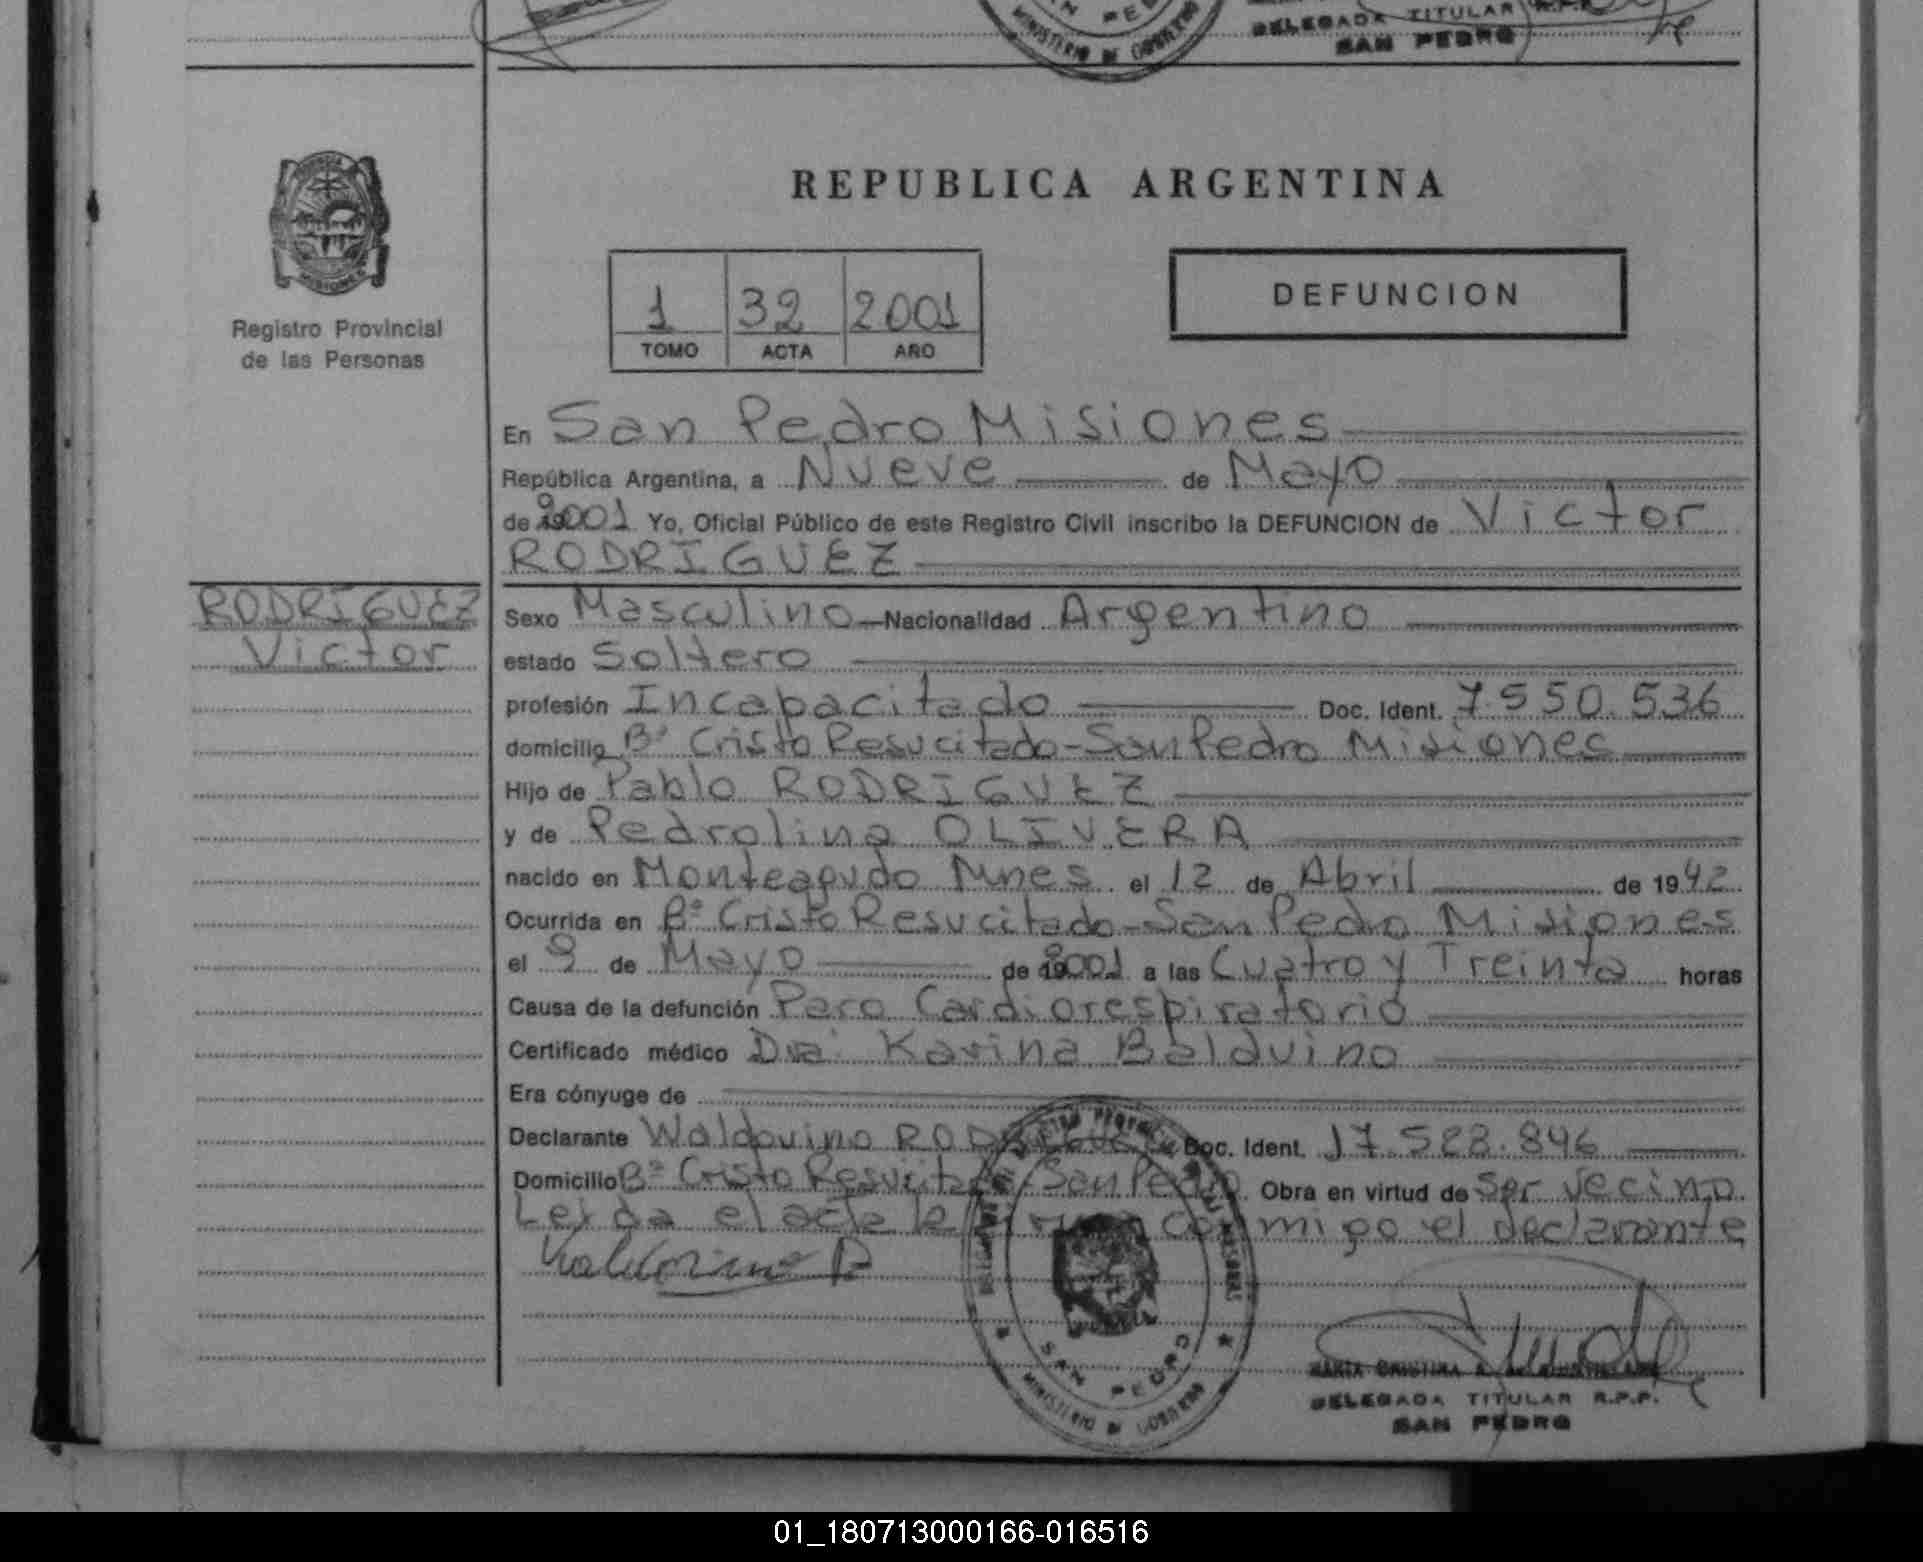 SAN PEDRO
MINISTERIO DE GOBIERNO
DELEGADA TITULAR R.P.P.
SAN PEDRO
PROVINCIA
MISIONES
Registro Provincial
de las Personas
REPUBLICA ARGENTINA
1 32 2001
TOMO ACTA AÑO
DEFUNCION
En San Pedro Misiones
República Argentina, a Nueve de Mayo
de 2001 Yo, Oficial Público de este Registro Civil inscribo la DEFUNCION de Victor
RODRIGUEZ
RODRIGUEZ
Victor
Sexo Masculino Nacionalidad Argentino
estado Soltero
profesión Incapacitado Doc. Ident. 7.550.536
domicilio Bº Cristo Resucitado - San Pedro Misiones
Hijo de Pablo RODRIGUEZ
y de Pedrolina OLIVERA
nacido en Monteagudo Mnes el 12 de Abril de 1942
Ocurrida en Bº Cristo Resucitado - San Pedro Misiones
el 9 de Mayo de 2001 a las Cuatro y Treinta horas
Causa de la defunción Paro Cardiorespiratorio
Certificado médico Dra. Karina Balduino
Era cónyuge de
Declarante Waldovino RODRIGUEZ Doc. Ident. 17.528.846
Domicilio Bº Cristo Resucitado - San Pedro. Obra en virtud de Ser Vecino
Leida el acta la firma conmigo el declarante
SAN PEDRO
MINISTERIO DE GOBIERNO
MARIA CRISTINA
DELEGADA TITULAR R.P.P.
SAN PEDRO
01_180713000166-016516